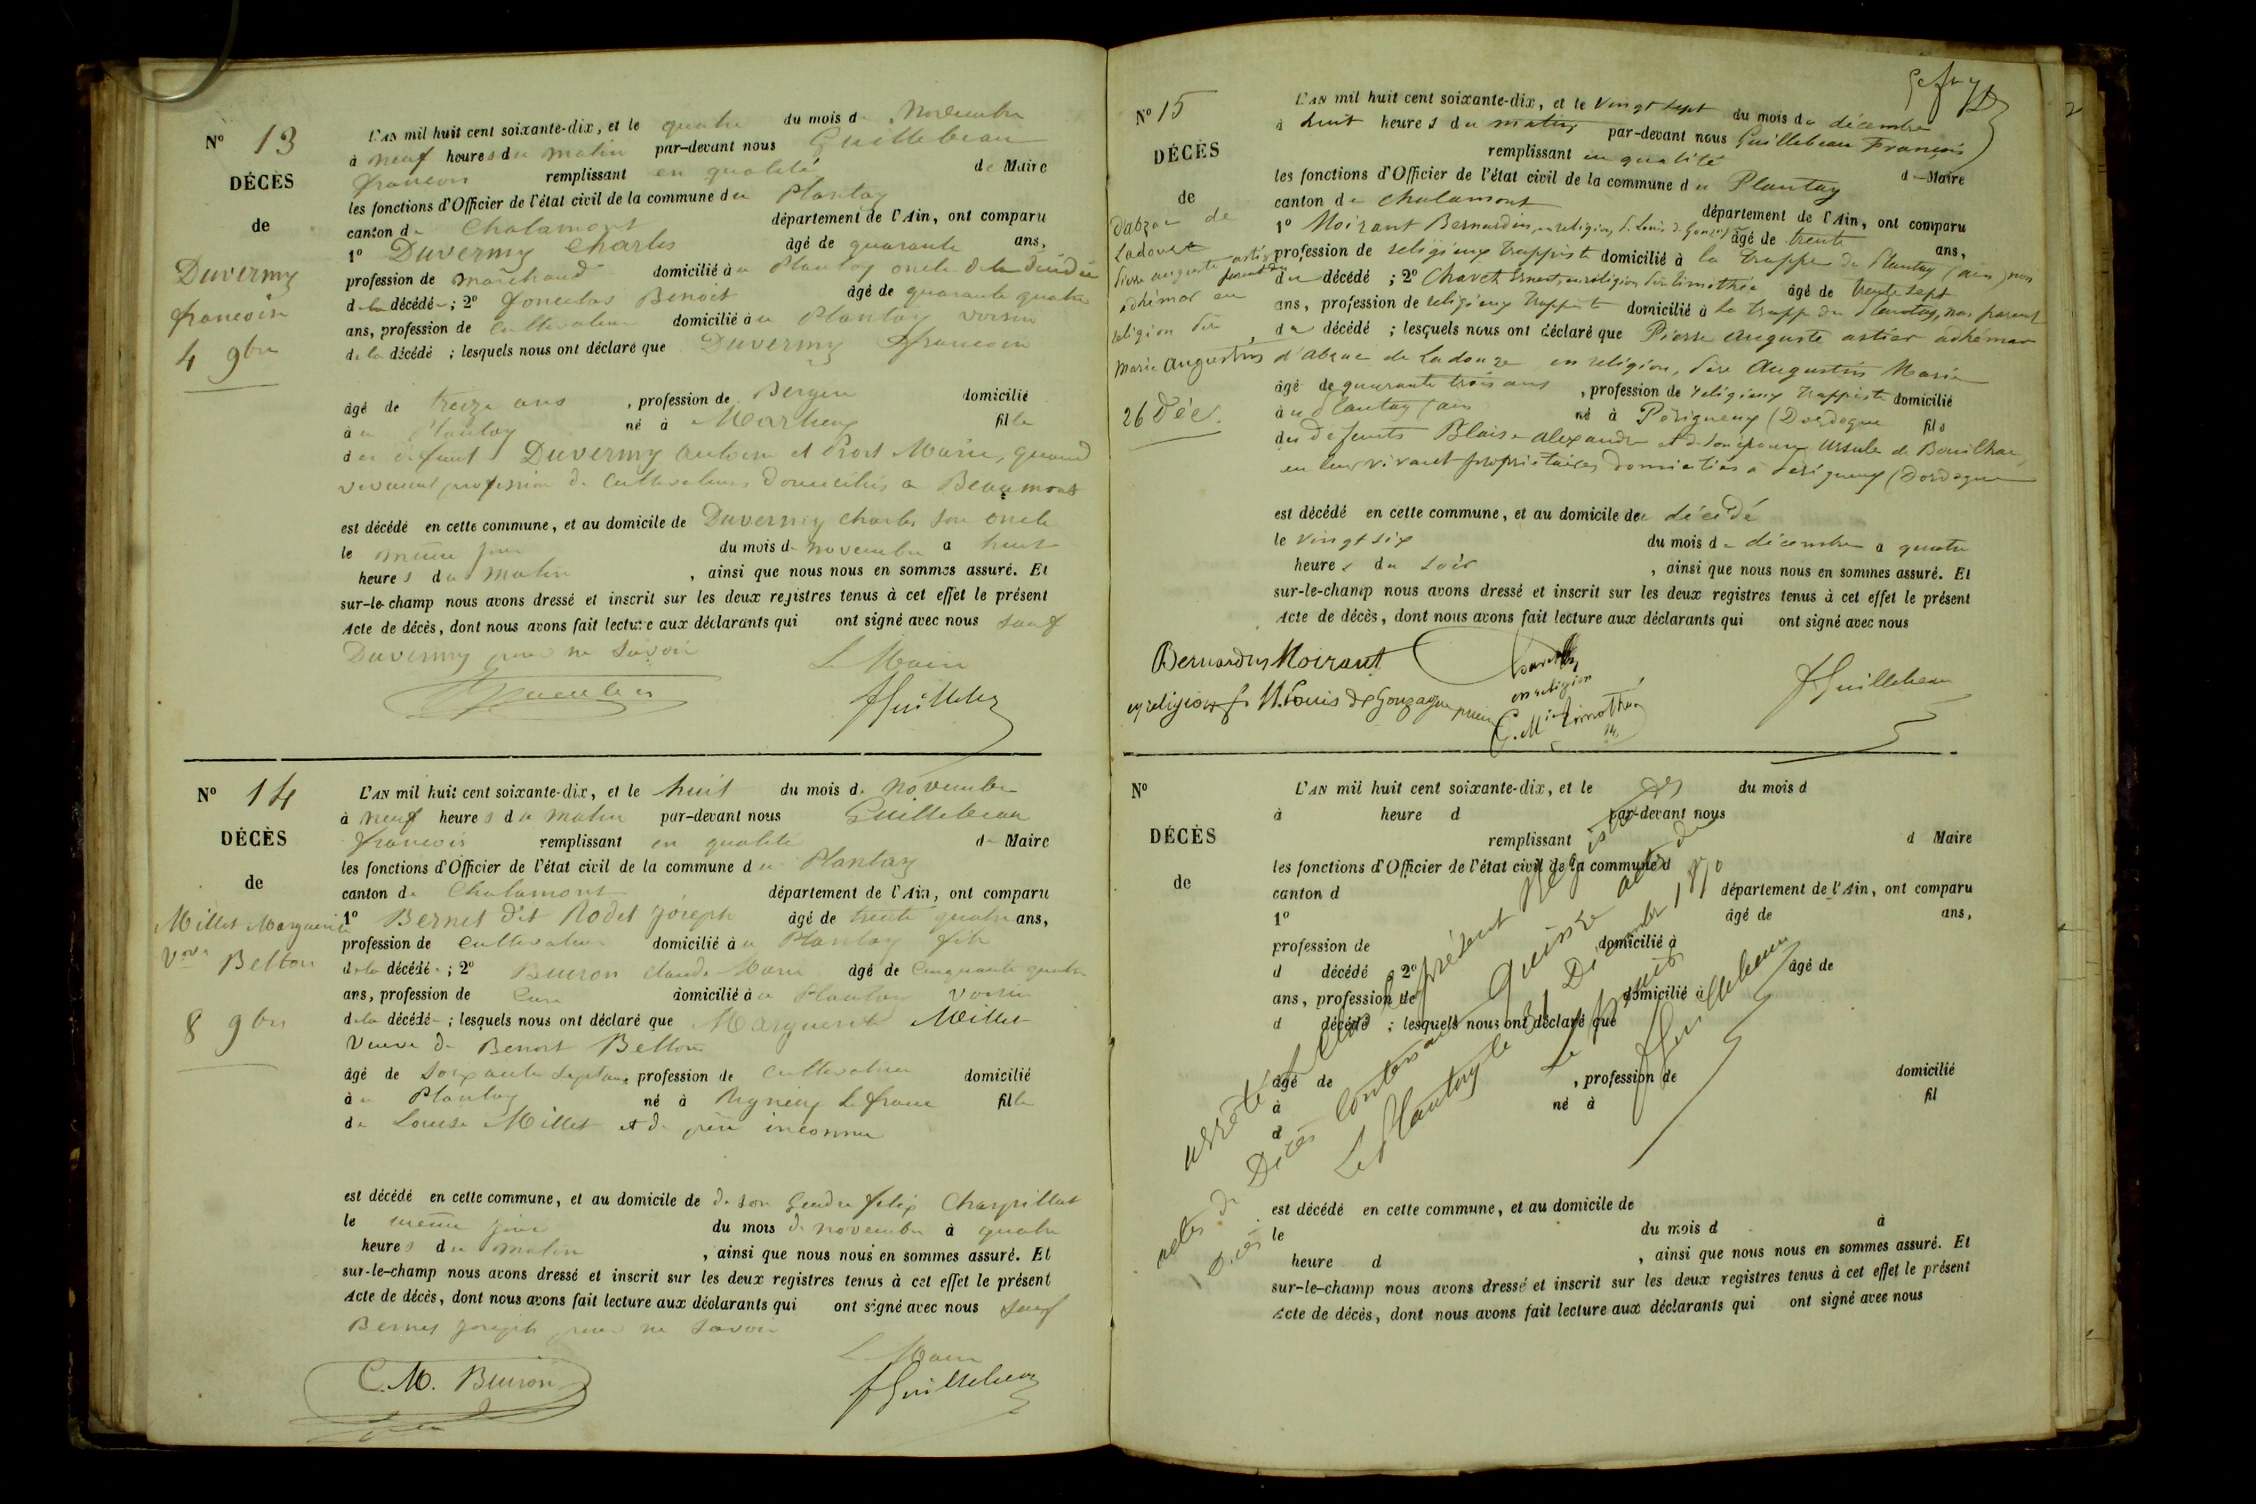 N° 13
DÉCÈS
de
Duvermy
françoise
4 9bre
L'AN mil huit cent soixante-dix, et le quatre du mois de Novembre
à neuf heures du matin par-devant nous Guillebeau
françois remplissant en qualité de Maire
les fonctions d'Officier de l'état civil de la commune du Plantay
canton de Chalamont département de l'Ain, ont comparu
1° Duvermy Charles âgé de quarante ans,
profession de marchand domicilié à u Plantay oncle de la
de la décédée ; 2° Benoit âgé de quarante quatre
ans, profession de cultivateur domicilié à u Plantay voisin
de la décédé ; lesquels nous ont déclaré que Duvermy françoise
âgé de treize ans , profession de Bergère domicilié
à u Plantay né à Marlieux fille
des défunt Duvermy Antoine et Marie, quand
vivaient profession de cultivateurs domiciliés a Beaumont
est décédé en cette commune, et au domicile de Duvermy Charles son oncle
le même jour du mois de novembre a huit
heures du matin , ainsi que nous nous en sommes assuré. Et
sur-le-champ nous avons dressé et inscrit sur les deux registres tenus à cet effet le présent
Acte de décès, dont nous avons fait lecture aux déclarants qui ont signé avec nous sauf
Duvermy pour ne savoir
Le Maire
fGuillebeau
N° 14
DÉCÈS
de
Millet Marguerite
Vve Belton
8 9bre
L'AN mil huit cent soixante-dix, et le huit du mois de novembre
à neuf heures du matin par-devant nous Guillebeau
françois remplissant en qualité de Maire
les fonctions d'Officier de l'état civil de la commune du Plantay
canton de Chalamont département de l'Ain, ont comparu
1° Bernet dit Rodet Joseph âgé de trente quatre ans,
profession de cultivateur domicilié à u Plantay
de la décédée ; 2° Buiron claude Marie âgé de Cinquante quatre
ans, profession de Curé domicilié à u Plantay voisin
de la décédée ; lesquels nous ont déclaré que Marguerite Millet
Veuve de Benoit Belton
âgé de soixante sept ans, profession de cultivateur domicilié
à u Plantay né à Rigneux le franc fille
de Louise Millet et de père inconnu
est décédé en cette commune, et au domicile de de son Gendre felix Charpillat
le même jour du mois de novembre à quatre
heures du matin , ainsi que nous nous en sommes assuré. Et
sur-le-champ nous avons dressé et inscrit sur les deux registres tenus à cet effet le présent
Acte de décès, dont nous avons fait lecture aux déclarants qui ont signé avec nous sauf
Bernet Joseph pour ne savoir
Le Maire
C. M. Buiron
fGuillebeau
N° 15
DÉCÈS
de
d'abzac de
Ladouze
pierre auguste astier
adhémar en
religion frère
marie augustin
26 Déc.
L'AN mil huit cent soixante-dix, et le vingt sept du mois de décembre
à huit heures du matin par-devant nous Guillebeau François
remplissant en qualité de Maire
les fonctions d'Officier de l'état civil de la commune du Plantay
canton de chalamont département de l'Ain, ont comparu
1° Moirant Bernardin, en religion f. Louis de Gonzague âgé de trente ans,
profession de religieux trappiste domicilié à la trappe du Plantay (ain) non parent du
du décédé ; 2° Chavet Ernest, en religion frère timothée âgé de trente sept
ans, profession de religieux trappiste domicilié à la trappe du Plantay, non parent
du décédé ; lesquels nous ont déclaré que Pierre Auguste astier adhémar
d'Abzac de Ladouze en religion, frère Augustin Marie
âgé de quarante trois ans , profession de religieux trappiste domicilié
à u Plantay (ain né à Périgueux (Dordogne fils
des défunts Blaise Alexandre et de son épouse Ursule de Bouilhac,
en leur vivant propriétaires domiciliés a Périgueux (Dordogne
est décédé en cette commune, et au domicile du décédé
le vingt six du mois de décembre a quatre
heures du soir , ainsi que nous nous en sommes assuré. Et
sur-le-champ nous avons dressé et inscrit sur les deux registres tenus à cet effet le présent
Acte de décès, dont nous avons fait lecture aux déclarants qui ont signé avec nous
Bernardin Moirant
en religion f. M. Louis de Gonzague prieur
en religion
f. M. timothée
fGuillebeau
N°
DÉCÈS
de
L'AN mil huit cent soixante-dix, et le du mois d
à heure d par-devant nous
remplissant d Maire
les fonctions d'Officier de l'état civil de la commune d
canton d département de l'Ain, ont comparu
1° âgé de ans,
profession de domicilié à
d décédé ; 2° âgé de
ans, profession de domicilié à
d décédé ; lesquels nous ont déclaré que
âgé de , profession de domicilié
à né à fil
d
est décédé en cette commune, et au domicile de
le du mois d à
heure d , ainsi que nous nous en sommes assuré. Et
sur-le-champ nous avons dressé et inscrit sur les deux registres tenus à cet effet le présent
Acte de décès, dont nous avons fait lecture aux déclarants qui ont signé avec nous
arrêté et clos le présent Registre des
actes de Décès contenant quinze actes de
Décès
Le Plantay le 31 Décembre 1870
Le Maire
fGuillebeau